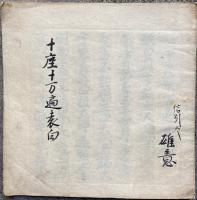 十座十万遍表白
雄意